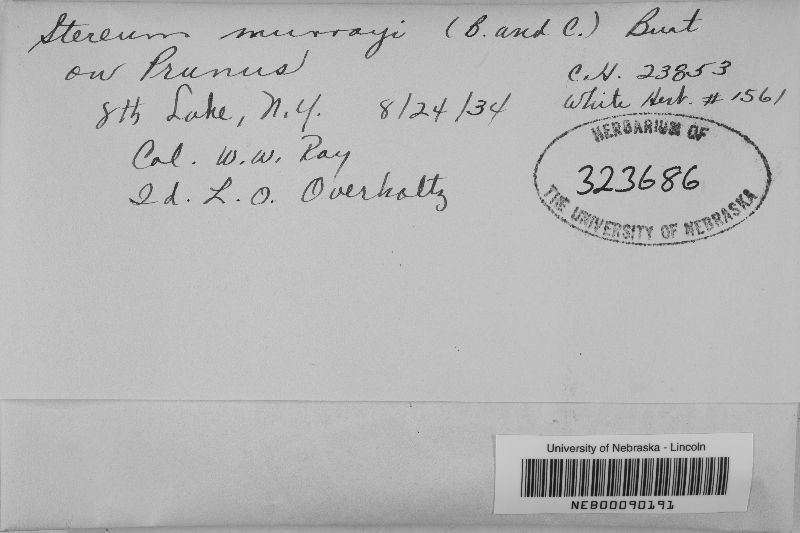 Stereum murrayi (B. and C.) Burt
on Prunus
8th Lake, N.Y. 8/24/34
Col. W.W. Ray
Id. L.O. Overholtz
C.H. 23853
White Herb. # 1561
HERBARIUM OF
323686
THE UNIVERSITY OF NEBRASKA
University of Nebraska - Lincoln
NEB00090191